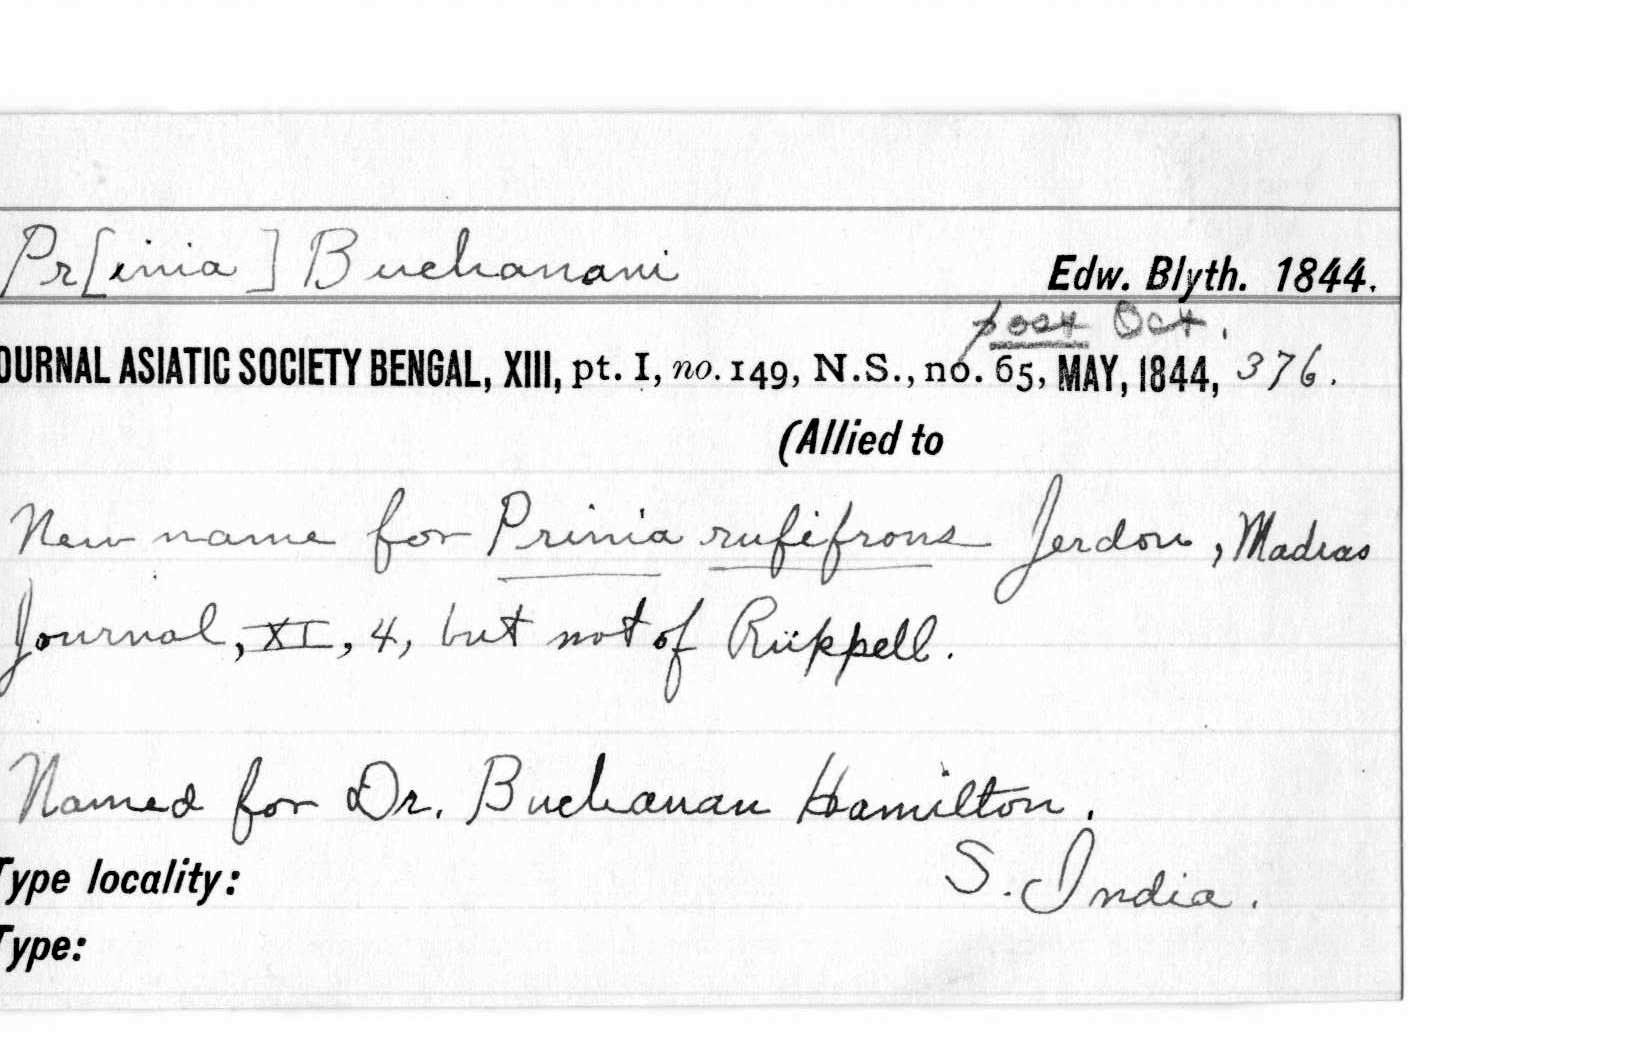 Pr[inia] Buchanani Edw. Blyth. 1844.
post Oct.
OURNAL ASIATIC SOCIETY BENGAL, XIII, pt. I, no. 149, N.S., no. 65, MAY, 1844, 376.
(Allied to
New name for Prinia rufifrons Jerdon, Madras
Journal, XI, 4, but not of Rüppell.
Named for Dr. Buchanan Hamilton.
Type locality: S. India.
Type: